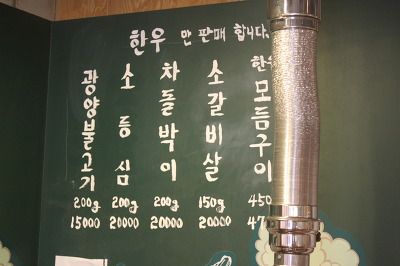 한우 만 판매 합니다.
광양불고기
200g
15000
소등심
200g
20000
차돌박이
200g
20000
소갈비살
150g
20000
한우
모듬구이
450
47